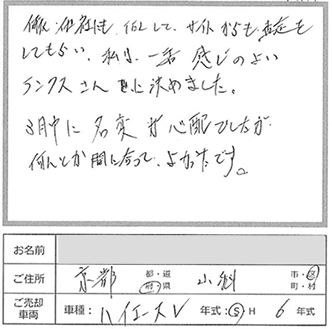 他社にも 似して、サイトからも 査定を
してもらい、私は、一番 感じのよい
シンクス さん に決めました。
3月中に 名変 が 心配でしたが
何とか間に合って、よかったです。
お名前
ご住所 京都 都・道 府・県 山科 市・区 町・村
ご売却 車両 車種：ハイエースV 年式：S H 6 年式